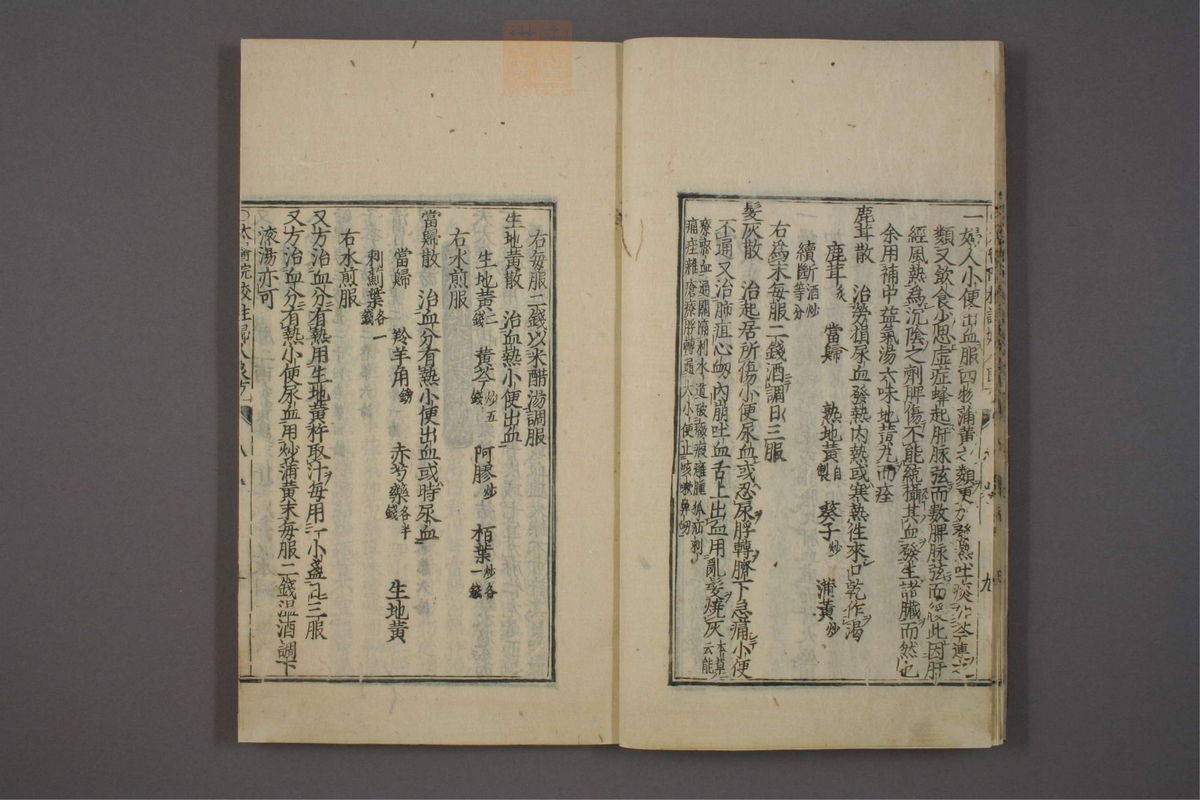 一婦人小便出血服四物蒲黃之類更加發熱吐痰加芩連之
類又飲食少思虛症蜂起肝脉弦而數脾脉弦而緩此因肝
經風熱爲沉陰之劑脾傷不能統攝其血發生諸臟而然也
余用補中益氣湯六味地黃丸而痊
鹿茸散 治勞損尿血發熱內熱或寒熱往來口乾作渴
鹿茸炙 當歸 熟地黃自製 葵子炒 蒲黃炒
續斷酒炒等分
右爲末每服二錢酒調日三服
髮灰散 治起居所傷小便尿血或忍尿脬轉臍下急痛小便
不通又治肺疽心衂內崩吐血舌上出血用亂髮燒灰本草云能
療瘀血通關膈利水道破癥瘕癰腫狐疝刺
痛痊雜瘡療脬轉通大小便止咳嗽鼻衂
右每服二錢以米醋湯調服
生地黃散 治血熱小便出血
生地黃二錢 黃芩炒五錢 阿膠炒 栢葉炒各一錢
右水煎服
當歸散 治血分有熱小便出血或時尿血
當歸 羚羊角鎊 赤芍藥各半錢 生地黃
刺薊葉各一錢
右水煎服
又方治血分有熱用生地黃杵取汁每用一小盞日三服
又方治血分有熱小便尿血用炒蒲黃末每服二錢溫酒調下
液湯亦可